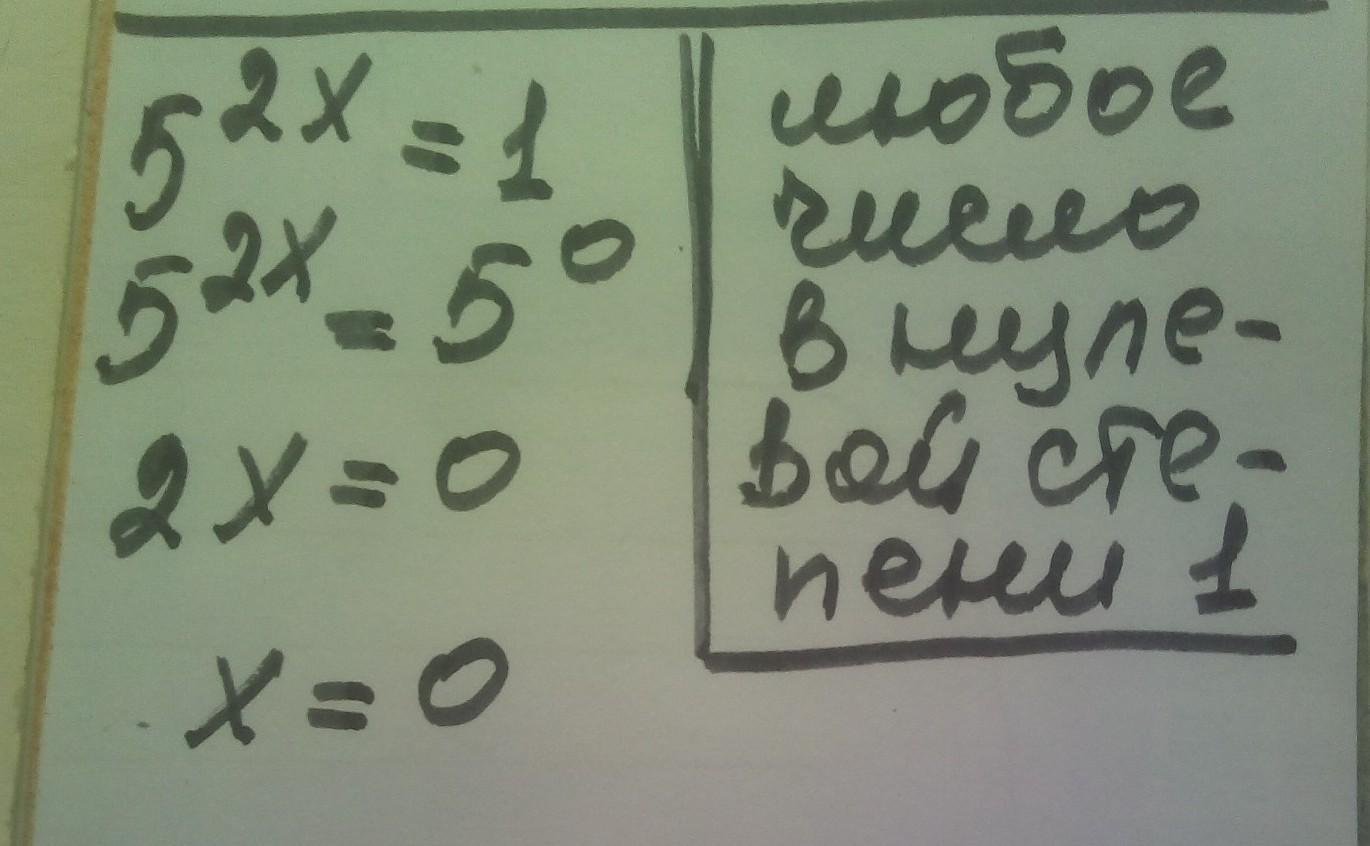 5^{2x} = 1
5^{2x} = 5^0
2x = 0
x = 0
любое
число
в нуле-
вой сте-
пени 1